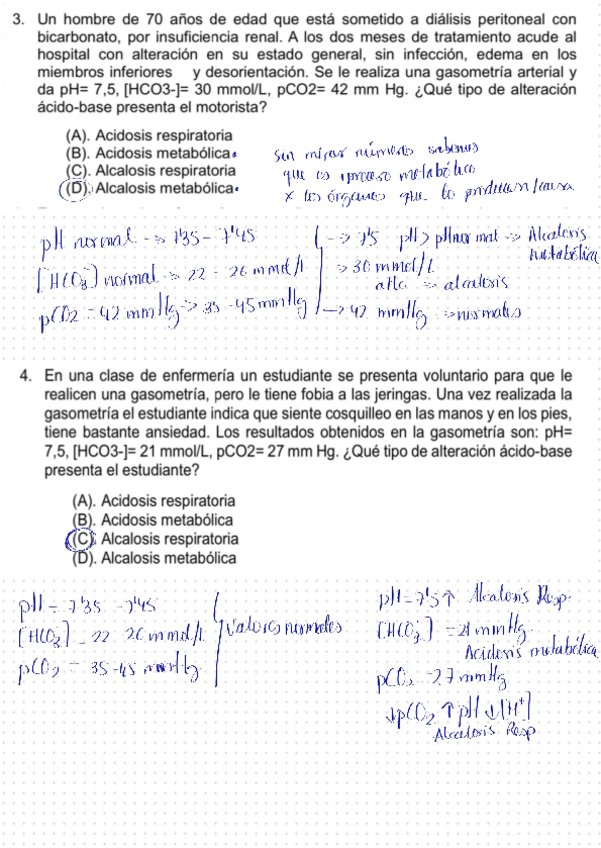 3. Un hombre de 70 años de edad que está sometido a diálisis peritoneal con
bicarbonato, por insuficiencia renal. A los dos meses de tratamiento acude al
hospital con alteración en su estado general, sin infección, edema en los
miembros inferiores y desorientación. Se le realiza una gasometría arterial y
da pH= 7,5, [HCO3-]= 30 mmol/L, pCO2= 42 mm Hg. ¿Qué tipo de alteración
ácido-base presenta el motorista?
(A). Acidosis respiratoria
(B). Acidosis metabólica
(C). Alcalosis respiratoria
(D). Alcalosis metabólica
sin mirar números sabemos
que es proceso metabólico
x los órganos que lo producen/causa
pH normal -> 7'35 - 7'45
[HCO3] normal -> 22 - 26 mmol/l
pCO2 = 42 mmHg -> 35 - 45 mmHg
-> 7'5 pH > pH normal -> Alcalosis
metabólica
-> 30 mmol/L
alto -> alcalosis
-> 42 mmHg -> normales
4. En una clase de enfermería un estudiante se presenta voluntario para que le
realicen una gasometría, pero le tiene fobia a las jeringas. Una vez realizada la
gasometría el estudiante indica que siente cosquilleo en las manos y en los pies,
tiene bastante ansiedad. Los resultados obtenidos en la gasometría son: pH=
7,5, [HCO3-]= 21 mmol/L, pCO2= 27 mm Hg. ¿Qué tipo de alteración ácido-base
presenta el estudiante?
(A). Acidosis respiratoria
(B). Acidosis metabólica
(C). Alcalosis respiratoria
(D). Alcalosis metabólica
pH = 7'35 - 7'45
[HCO3] = 22 26 mmol/l
pCO2 = 35-45 mmHg
Valores normales
pH = 7'5 ↑ Alcalosis Resp.
[HCO3] = 21 mmHg.
Acidosis metabólica
pCO2 = 27 mmHg
↓pCO2 ↑pH ↓[H+]
Alcalosis Resp